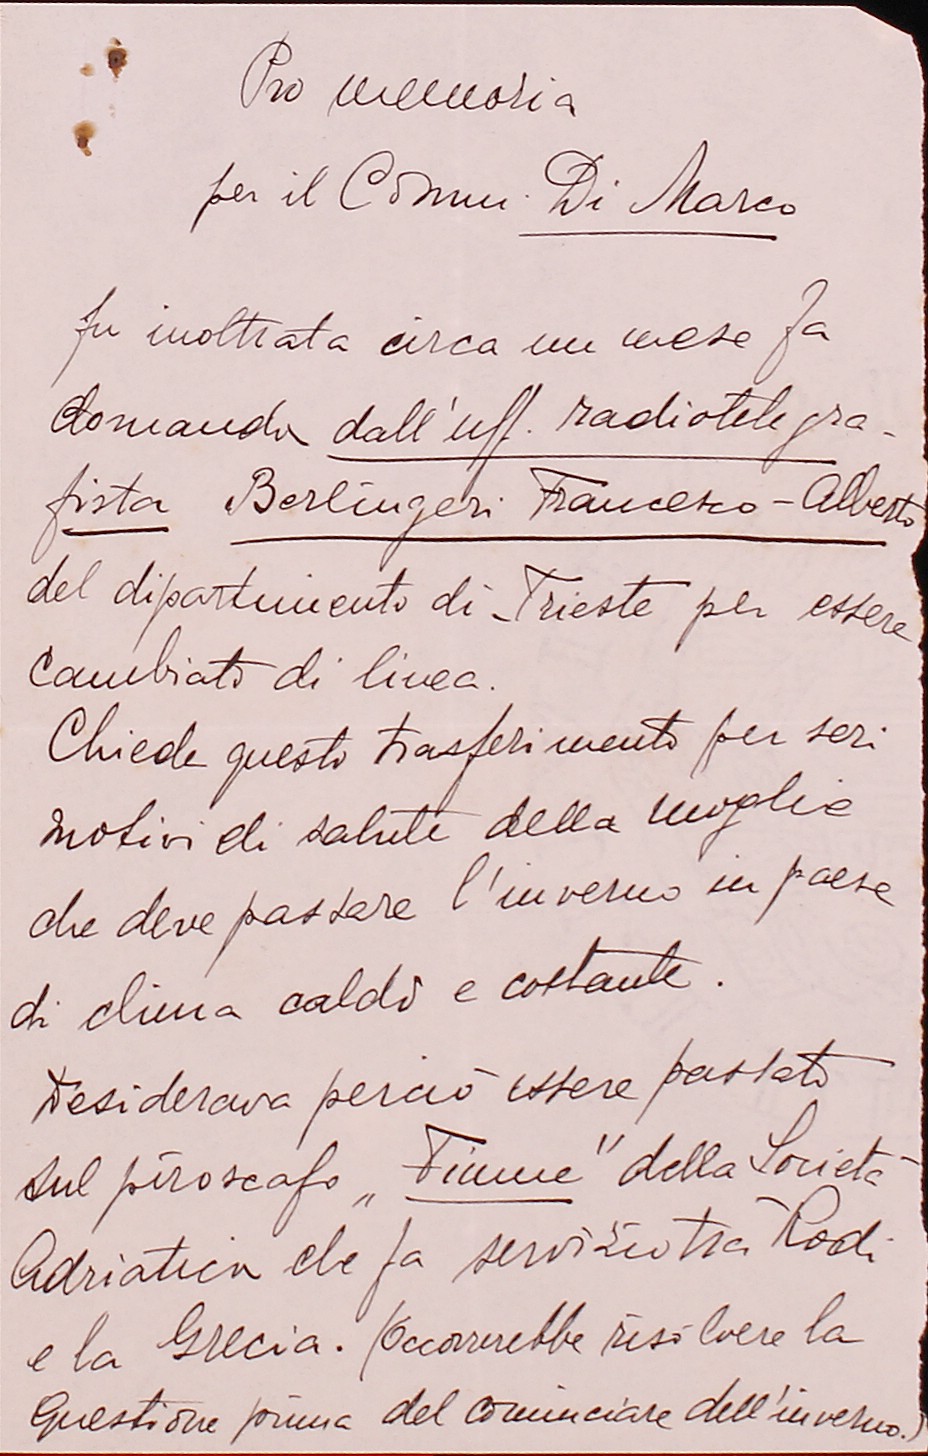 Pro memoria
per il Comm. Di Marco
fu inoltrata circa un mese fa
domanda dall'uff. radiotelegra-
fista Berlingeri Francesco - Alberto
del dipartimento di Trieste per essere
cambiato di linea.
Chiede questo trasferimento per seri
motivi di salute della moglie
che deve passare l'inverno in paese
di clima caldo e costante.
Desiderava perciò essere passato
sul piroscafo „Fiume" della Società
Adriatica che fa servizio tra Rodi
e la Grecia. (Occorrerebbe risolvere la
questione prima del cominciare dell'inverno.)